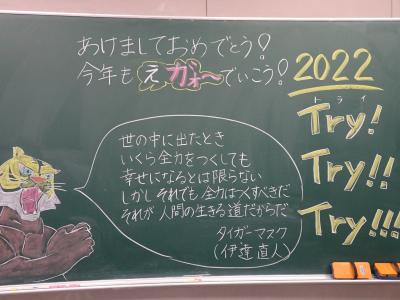 あけましておめでとう!
今年も えガオ〜でいこう!
2022
トライ
Try!
Try!!
Try!!!
世の中に出たとき
いくら全力をつくしても
幸せになるとは限らない
しかしそれでも 全力はつくすべきだ
それが 人間の生きる道だからだ
タイガーマスク
(伊達直人)